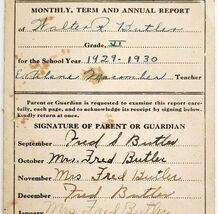 MONTHLY, TERM AND ANNUAL REPORT
of Walter P. Butler
Grade, VI
for the School Year 1929-1930
Macomber Teacher
Parent or Guardian is requested to examine this report carefully, each page, and to acknowledge its receipt by signing below.
Kindly return at once.
SIGNATURE OF PARENT OR GUARDIAN
September Fred S Butler
October Mrs. Fred Butler
November Mrs. Fred Butler
December Fred Butler
January Mrs. Fred Butler